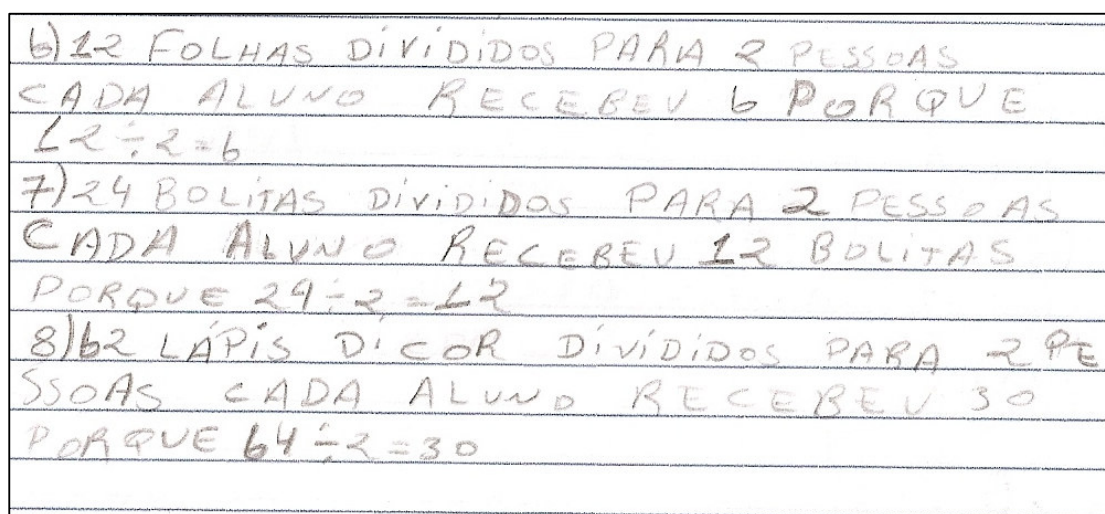 6)12 FOLHAS DiViDiDOS PARA 2 PESSOAS
CADA ALUNO RECEBEU 6 PORQUE
12÷2=6
7)24 BOLiTAS DiViDiDOS PARA 2 PESSOAS
CADA ALUNO RECEBEU 12 BOLiTAS
PORQUE 24÷2=12
8)62 LÁPiS Di COR DiViDiDOS PARA 2 PE
SSOAS CADA ALUNO RECEBEU 30
PORQUE 64÷2=30